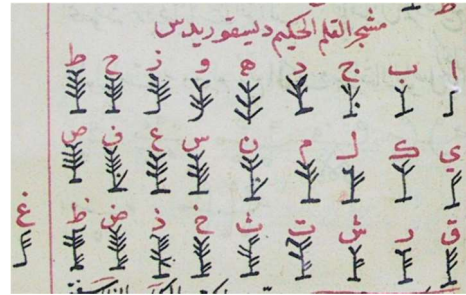 مشجر القلم الحكيم ديسقوريدس
ا ب ج د ه و ز ح ط
ي ك ل م ن س ع ف ص
ق ر ش ت ث خ ذ ض ظ
غ